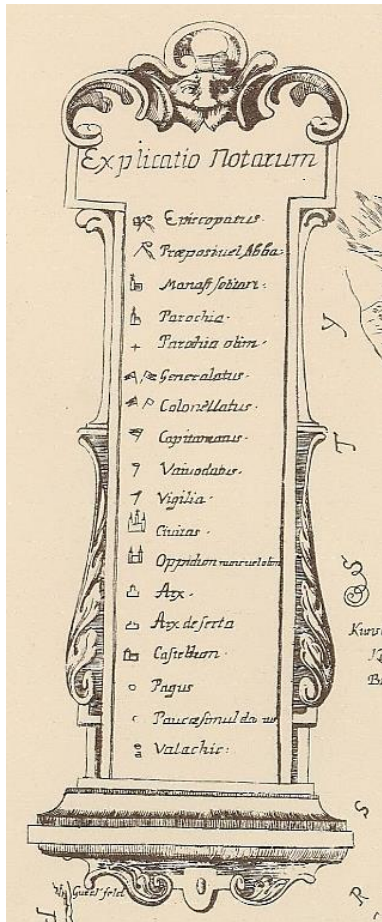 Explicatio Notarum
Episcopatus.
Præposi vel Abba:
Monast solitari:
Parochia.
Parochia olim.
Generalatus.
Colonellatus.
Capitanatus.
Vaivodatus.
Vigilia.
Civitas.
Oppidum nunc vel olim
Arx.
Arx deserta
Castellum.
Pagus
Valachic:
Y
T
S
Kunst
S
P